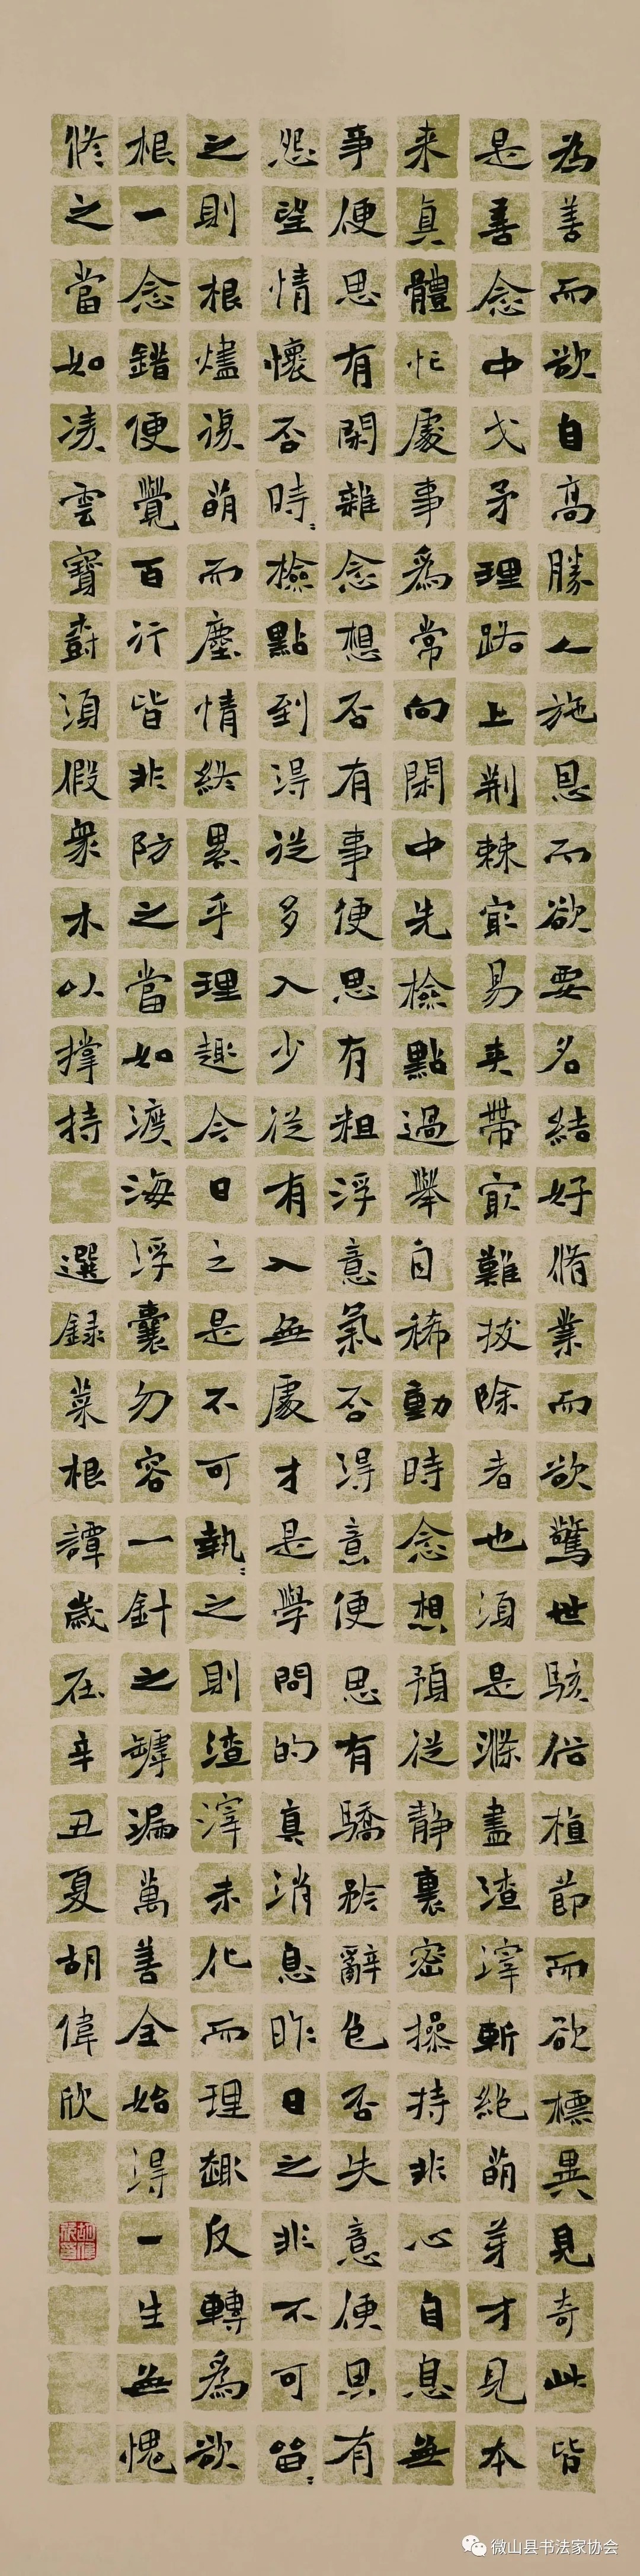 為善而欲自高勝人施恩而欲要名結好脩業而欲驚世駭俗植節而欲標異見奇此皆
是善念中戈矛理路上荊棘冣易夾帶冣難拔除者也須是滌盡渣滓斬絕萌芽才見本
来真體忙處事爲常向閑中先檢點過舉自稀動時念想預從静裏密操持非心自息無
事便思有閑雜念想否有事便思有粗浮意氣否得意便思有驕矜辭色否失意便思有
怨望情懷否時〻檢點到得從多入少從有入無處才是學問的真消息昨日之非不可留〻
之則根燼復萌而塵情終累乎理趣今日之是不可執〻之則渣滓未化而理趣反轉爲欲
根一念錯便覺百行皆非防之當如渡海浮囊勿容一針之罅漏萬善全始得一生無愧
修之當如凌雲寶樹須假衆木以撐持 選録菜根譚歲在辛丑夏胡偉欣
微山县书法家协会